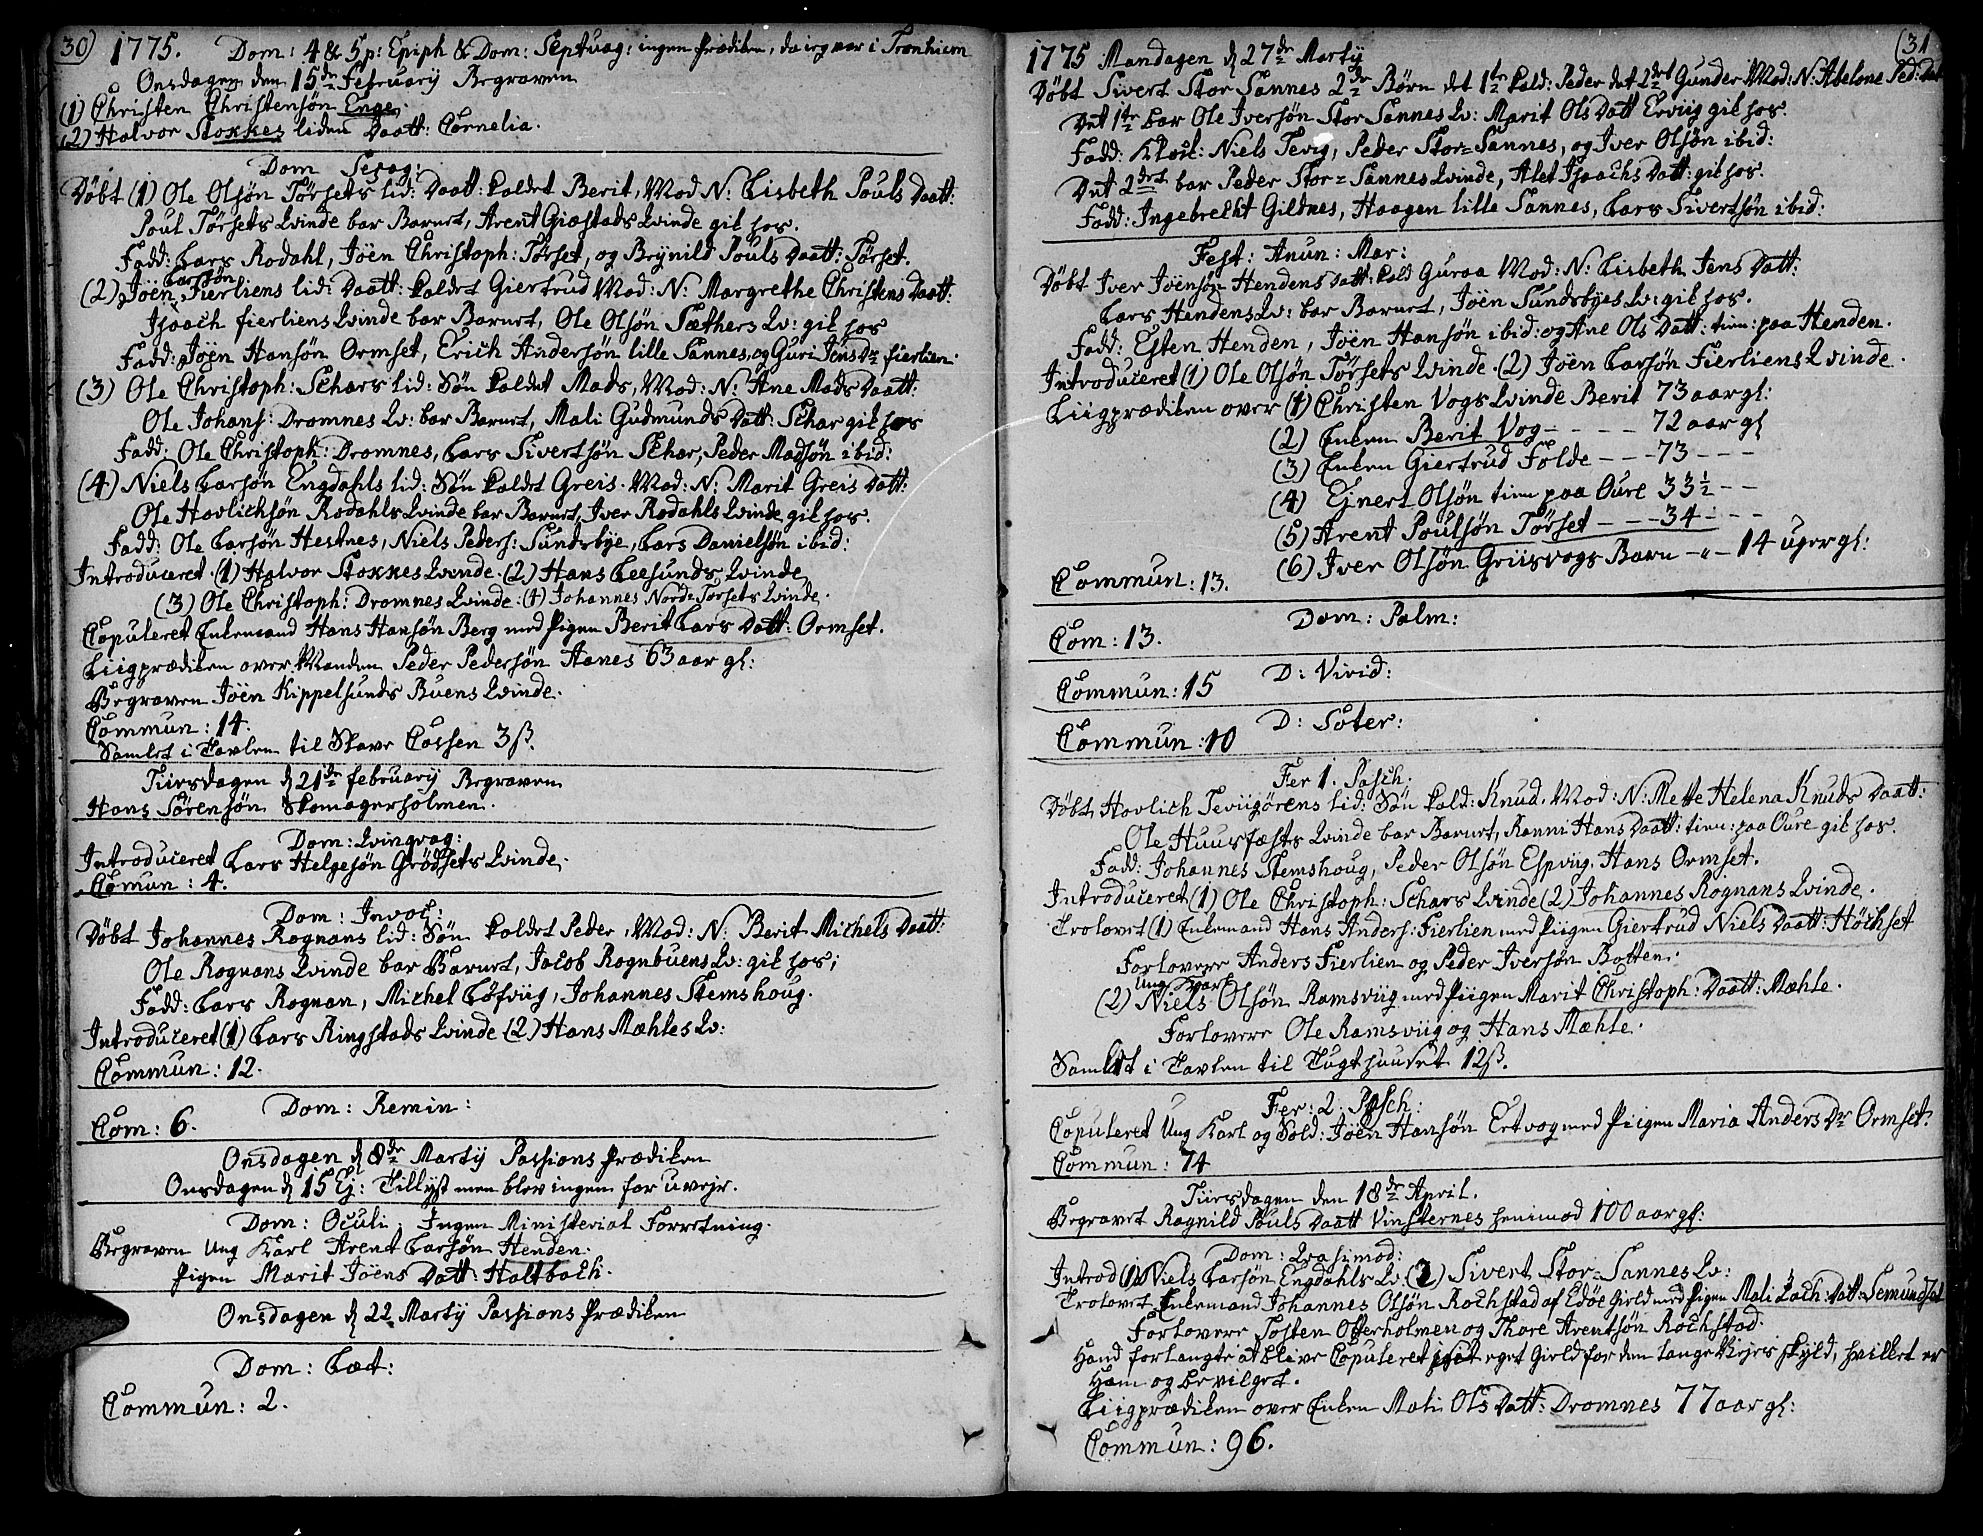 30) 1775. Dom: 4 & 5 p: Epiph & Dom: Septuag: ingen Prædiken, da ieg var i Tronhiem
Onsdagen den 15de February Begraven
(1) Christen Christensøn Enge.
(2) Halvor Stokkes liden Daatt: Cornelia.
Dom Sexag:
Døbt (1) Ole Olsøn Tørsets lid: Daatt: kaldet Berit, Mod: N: Lisbeth Pouls Daatt:
Poul Tørsets Qvinde bar Barnet, Arent Giøstads Qvinde gik hos.
Fadd: Lars Rodahl, Jöen Christoph: Tørset, og Brynild Pouls Daatt: Tørset.
Larsøn
(2) Jöen Fierliens lid: Daatt: kaldet Giertrud Mod: N: Margrethe Christens Daatt:
Isaach fierliens Qvinde bar Barnet, Ole Olsøn Sæthers Qv: gik hos
Fadd: Jöen Hansøn Ormset, Erich Andersøn lille Sannes, og Guri Jens Dr fierlien.
(3) Ole Christoph: Schars lid: Søn kaldet Mads, Mod: N: Ane Mads Daatt:
Ole Johans: Dromnes Qv: bar Barnet, Mali Gudmunds Datt: Schar gik hos
Fadd: Ole Christoph: Dromnes, Lars Sivertsøn Schar, Peder Madsøn ibid:
(4) Niels Larsøn Engdahls lid: Søn kaldet Greis. Mod: N: Marit Greis Datt:
Ole Hovlichsøn Rodahls Qvinde bar Barnet, Iver Rodahls Qvinde gik hos.
Fadd: Ole Larsøn Hestnes, Niels Peders: Sundsbye, Lars Danielsøn ibid:
Introduceret. (1) Halvor Stokkes Qvinde. (2) Hans Leesunds Qvinde
(3) Ole Christoph: Dromnes Qvinde. (4) Johannes Nord-Tørsets Qvinde.
Copuleret Enkemand Hans Hansøn Berg med Pigen Berit Lars Datt: Ormset.
Liigprædiken over Manden Peder Pedersøn Aanes 63 aar gl:
Begraven Jöen Kippelsunds Buens Qvinde.
Commun: 14.
Samlet i Tavlen til Skave Cassen 3 ß.
Tiirsdagen d 21de February Begraven
Hans Sørensøn Skomagerholmen.
Dom: Qvinqvag:
Introduceret Lars Helgesøn Grødsets Qvinde.
Comun: 4.
Dom: Invoc:
Døbt Johannes Rognans lid: Søn kaldet Peder, Mod: N: Berit Michels Daatt:
Ole Rognans Qvinde bar Barnet, Jacob Rognbuens Qv: gik hos;
Fadd: Lars Rognan, Michel Løfviig, Johannes Stemshoug.
Introduceret (1) Lars Ringstads Qvinde (2) Hans Mæhles Qv:
Commun: 12.
Dom: Remin:
Com: 6.
Onsdagen d 8de Martij Passions Prædiken
Onsdagen d 15 Ej: Tillyst men blev ingen for uvejr.
Dom: Oculi. Ingen Ministerial Forretning.
Begraven Ung Karl Arent Larsøn Henden.
Pigen Marit Jöens Datt: Holtbach.
Onsdagen d 22 Martij Passions Prædiken
Dom: Læt:
Commun: 2.
(31
1775 Mandagen d 27de Martij
Døbt Sivert Stor Sannes 2de Børn det 1te kald: Peder det 2det Gunder Mod: N: Abelone Ped: Dat
Det 1te bar Ole Iversøn Stor Sannes Qv: Marit Ols Datt Ervig gik hos.
Fadd: Klock: Niels Tevig, Peder Stor=Sannes, og Iver Olsøn ibid:
Det 2det bar Peder Stor=Sannes Qvinde, Alet Isaachs Datt: gik hos.
Fadd: Ingebrecht Gildnes, Haagen lille Sannes, Lars Sivertsøn ibid:
Fest: Anun: Mar:
Døbt Iver Jöensøn Hendens Datt: kald Guroa Mod: N: Lisbeth Jens Datt:
Lars Hendens Qv: bar Barnet, Jöen Sundsbyes Qv: gik hos.
Fadd: Esten Henden, Jöen Hansøn ibid: og Ane Ols Datt: tien: paa Henden.
Introduceret (1) Ole Olsøn Tørsets Qvinde. (2) Jöen Larsøn Fierliens Qvinde.
Liigprædiken over (1) Christen Vogs Qvinde Berit 73 aar gl:
(2) Enken Berit Vog - - - - 72 aar gl
(3) Enken Giertrud Folde - - - 73 - - -
(4) Ejnert Olsøn tien paa Oure 33½ - -
(5) Arent Poulsøn Tørset - - - 34 - - -
(6) Iver Olsøn Griisvogs Barn - " - 14 uger gl:
Commun: 13.
Dom: Palm:
Com: 13.
D: Virid:
Commun: 15
D: Soter:
Commun: 10
Fer 1. Pasch:
Døbt Hovlich Teviigørens lid: Søn kald: Knud. Mod: N: Mette Helena Knuds Daatt:
Ole Huusfæsts Qvinde bar Barnet, Ranni Hans Daatt: tien: paa Oure gik hos.
Fadd: Johannes Stemshoug, Peder Olsøn Espviig. Hans Ormset.
Introduceret (1) Ole Christoph: Schars Qvinde (2) Johannes Rognans Qvinde.
Trolovet (1) Enkemand Hans Anders: Fierlien med Piigen Giertrud Niels Daatt: Höchset
Forlovere Anders Fierlien og Peder Iversøn Botten.
Ung Karl
(2) Niels Olsøn Ramsviig med Piigen Marit Christoph: Daatt: Mæhle.
Forlovere Ole Ramsviig og Hans Mæhle.
Samlet i Tavlen til Tugthuuset 12 ß.
Fer: 2. Pasch:
Copuleret Ung Karl og Sold: Jöen Hansøn Ertvog med Piigen Maria Anders Dr Ormset.
Commun: 74
Tiirsdagen den 18de April.
Begravet Rognild Pouls Daatt Vinsternes henimod 100 aar gl:
Dom: Qvasimod:
Introd (1) Niels Larsøn Engdahls Qv. (2) Sivert Stor=Sannes Qv:
Trolovet Enkemand Johannes Olsøn Rochstad af Edøe Gield med Pigen Mali Zach: Datt: Semundset
Forlovere Tosten Osterholmen og Thore Arentsøn Rochstad.
Hand forlangte at blive Copuleret i sit eget Gield for den lange Vejes skyld, hvilket er
Ham og bevilget.
Liigprædiken over Enken Mali Ols Datt: Dromnes 77 aar gl:
Commun: 96.